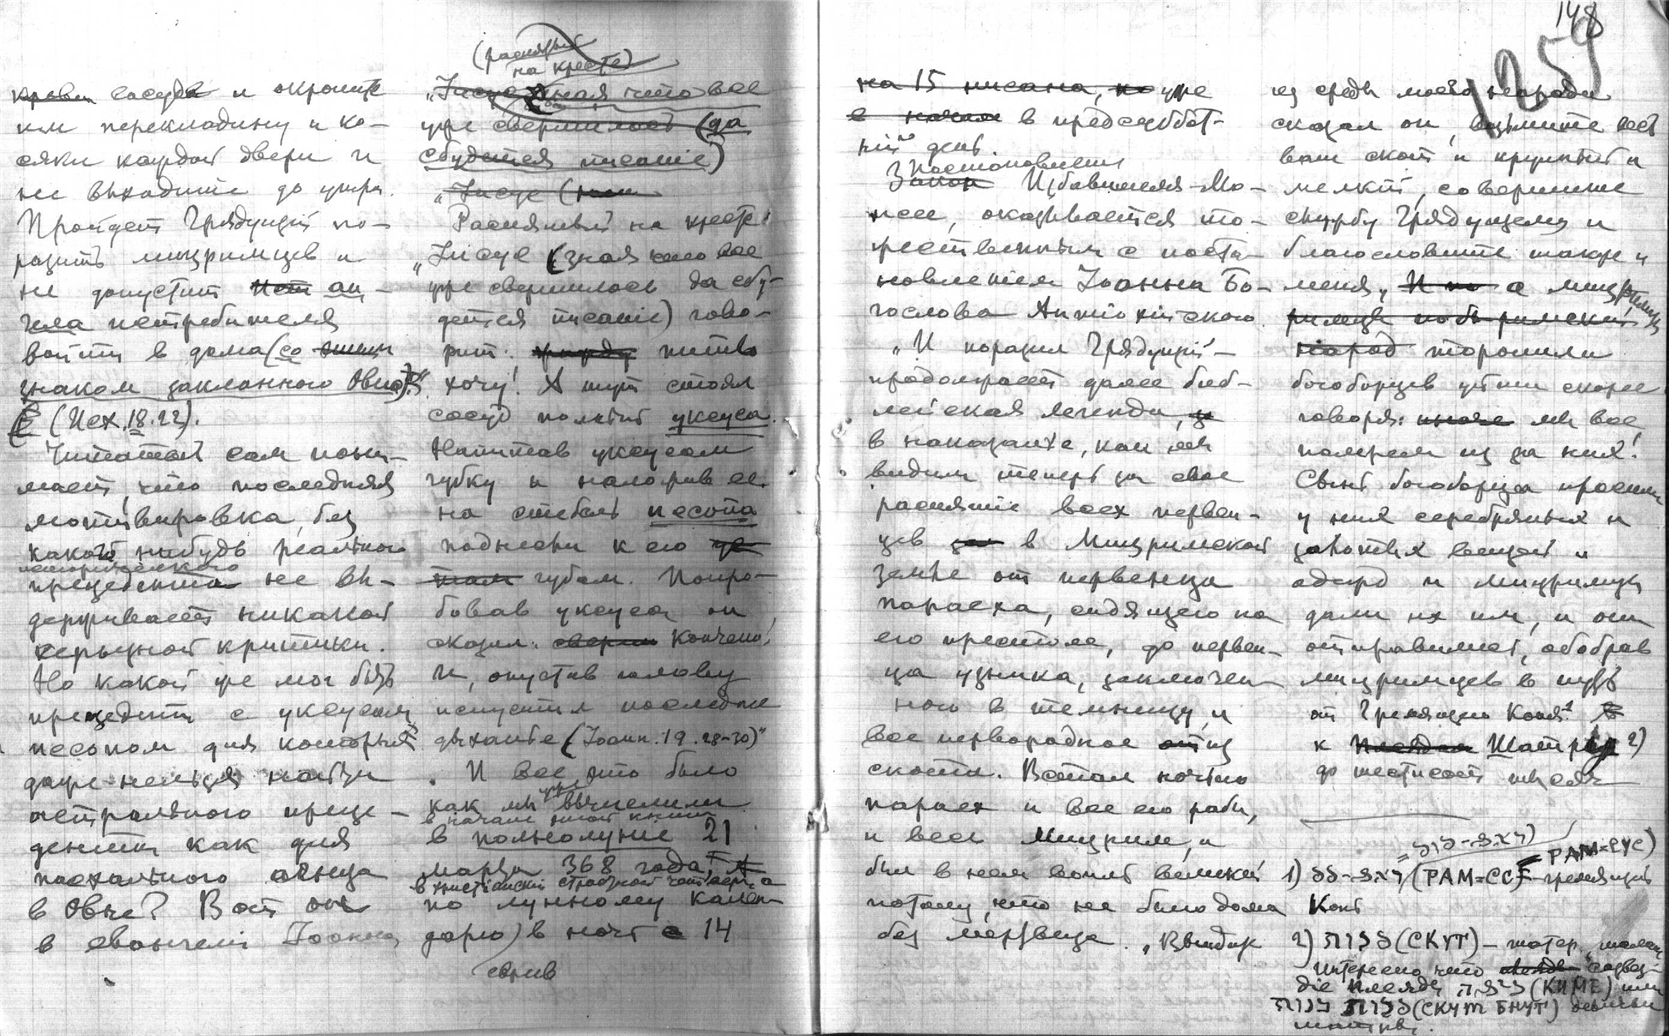 сосуда и окропите
им перекладину и ко-
сяки каждой двери и
не выходите до утра.
Пройдет Грядущий по-
разить мицримцев и
не допустит ан-
гела истребителя
войти в дома (со
знаком закланного Овна)".
(Исх. 18.22).
Читатель сам пони-
мает, что последняя
мотивировка, без
какого нибудь реального
исторического
прецедента не вы-
держивает никакой
серьезной критики.
Но какой же мог быть
прецедент с уксусом
иссопом для которых
даже нельзя найти
астрального преце-
дента как для
пасхального агнца
в Овне? Вот он
в евангелии Иоанна,
(распятый
на кресте)
"Иисус зная что все
уже свершилось (да
сбудется писание)
"Иисус
Распятый на кресте
"Иисус (зная что все
уже свершилось да сбу-
дется писание) гово-
рит: пить
хочу! А тут стоял
сосуд полный уксуса.
Напитав уксусом
губку и наложив ее
на стебель иссопа
поднесли к его
губам. Попро-
бовав уксуса он
сказал: Кончено!
И, опустив голову
испустил последнее
дыхание (Иоан. 19. 28-30)"
. И все это было
как мы уже вычислили
в начале этой книги
в полнолуние 21
марта 368 года,
в христианский страстной четверг, а
по лунному кален-
дарю) в ночь с 14
148
1259
на 15 нисана, уже
в предсуббот-
ний день
Постановление
Закон Избавителя-Мо-
исея, оказывается то-
жественным с поста-
новлением Иоанна Бо-
гослова Антиохийского.
"И поразил Грядущий -
продолжает далее биб-
лейская легенда,
в наказание, как мы
видим теперь за свое
распятие всех первен-
цев в Мицримской
земле от первенца
параеха, сидящего на
его престоле, до первен-
ца узника, заключен-
ного в темницу, и
все первородное из
скота. Встал ночью
параех и все его рабы,
и весь Мицрим, и
был в нем вопль великий
потому, что не было дома
без мертвеца. "Выйдите
из среды моего народа
сказал он, возьмите весь
ваш скот и крупный и
мелкий, совершите
службу Грядущему и
благословите также и
меня, а мицримцы
народ торопили
богоборцев уйти скорее
говоря: мы все
помрем из за них!
Сыны богоборца просили
у них серебряных и
золотых вещей и
одежд и мицримцы
дали их им, и они
отправились, обобрав
мицримцев в путь
от Гремящего Коня 1)
к Шатру 2)
до шестисот тысяч
1) (РАМ=ССС - гремящий
РАМ=СУС)
Конь
2) סכות (СКУТ) - шатер,
Интересно что созвез-
дие Плеяды כימה (КИМЕ) или
סכות בנות (СКУТ БНУТ)